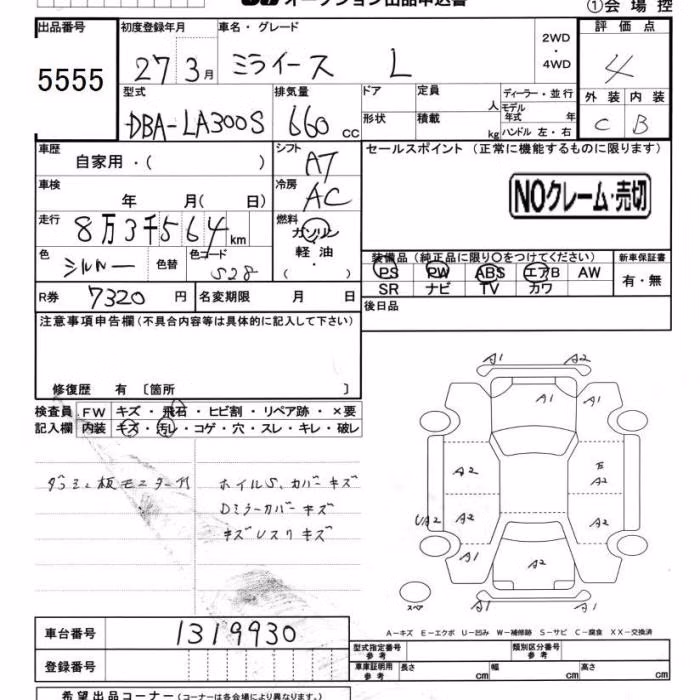 オークション出品申込書
①会場控
出品番号 5555
初度登録年月 27 3月
車名・グレード ミライース L
2WD ・ 4WD
評価点 4
外装 C 内装 B
型式 DBA-LA300S
排気量 660 cc
ドア
形状
定員 人
積載 kg
ディーラー・並行
モデル年式 年
ハンドル 左・右
車歴 自家用・( )
シフト AT
セールスポイント (正常に機能するものに限ります)
NOクレーム・売切
車検 年 月( 日)
冷房 AC
走行 8万3千564 km
燃料 ガソリン
軽油
( ・ )
色 シルバー 色替
色コード S28
装備品 (純正品に限り〇をつけてください)
PS PW ABS エアB AW
SR ナビ TV カワ
新車保証書
有・無
R券 7320 円
名変期限 月 日
後日品
注意事項申告欄 (不具合内容等は具体的に記入して下さい)
修復歴 有 〔箇所 〕
検査員 FW キズ・飛石・ヒビ割・リペア跡・×要
記入欄 内装 キズ・汚レ・コゲ・穴・スレ・キレ・破レ
ホイルS、カバーキズ
Dミラーカバーキズ
キズUスリキズ
A1 A2
A1 A1
A2 A2
UA2 A2 A2
A1 A2 A1
A1 A1
スペア
A-キズ E-エクボ U-凹み W-補修跡 S-サビ C-腐食 XX-交換済
車台番号 1319930
登録番号
型式指定番号 参考
類別区分番号 参考
車庫証明用 参考 長さ cm 幅 cm 高さ cm
希望出品コーナー (コーナーは各会場により異なります。)